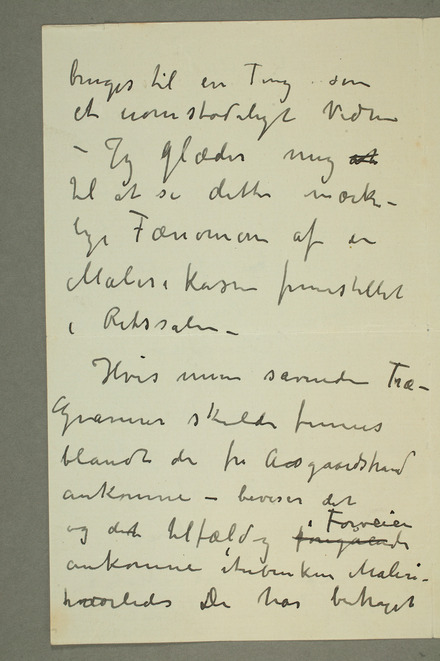 bruges til en Ting som
et uomstødeligt Vidne
– Jeg glæder mig
til at se dette mærke-
lige Fænomen af en
Maleri Kasse fremstillet
i Retssalen –
Hvis mine savnede Træ-
Gravurer skulde findes
blandt de fra Aasgaardstrand
ankomne – beviser det
og det tilfældig i Forveien
ankomne Maleri-
hvorledes De har betraget